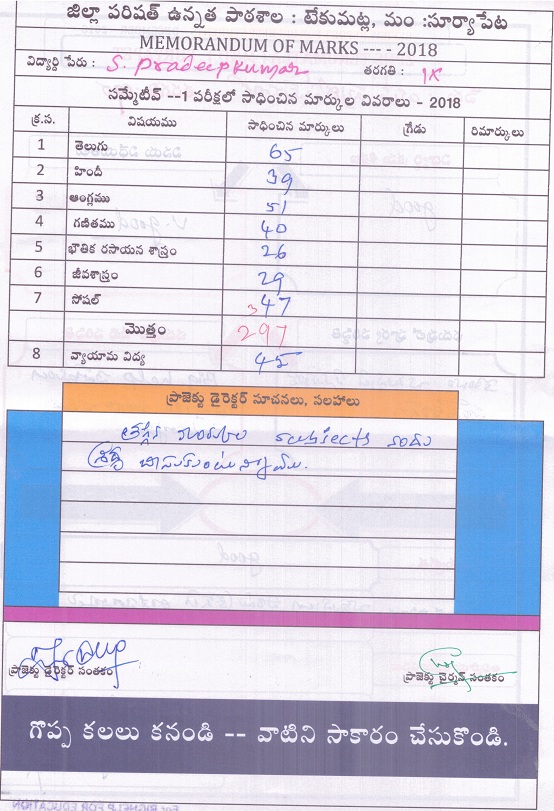 జిల్లా పరిషత్ ఉన్నత పాఠశాల : టేకుమట్ల, మం :సూర్యాపేట
MEMORANDUM OF MARKS ---- - 2018
విద్యార్థి పేరు : S. Pradeepkumar తరగతి : IX
సమ్మేటీవ్ --1 పరీక్షలో సాధించిన మార్కుల వివరాలు - 2018
క్ర.స. విషయము సాధించిన మార్కులు గ్రేడు రిమార్కులు
1 తెలుగు 65
2 హిందీ 39
3 ఆంగ్లము 51
4 గణితము 40
5 భౌతిక రసాయన శాస్త్రం 26
6 జీవశాస్త్రం 29
7 సోషల్ 47
మొత్తం 297
8 వ్యాయామ విద్య 45
ప్రాజెక్టు డైరెక్టర్ సూచనలు, సలహాలు
subjects
ప్రాజెక్టు డైరెక్టర్ సంతకం
ప్రాజెక్టు చైర్మన్ సంతకం
గొప్ప కలలు కనండి -- వాటిని సాకారం చేసుకొండి.